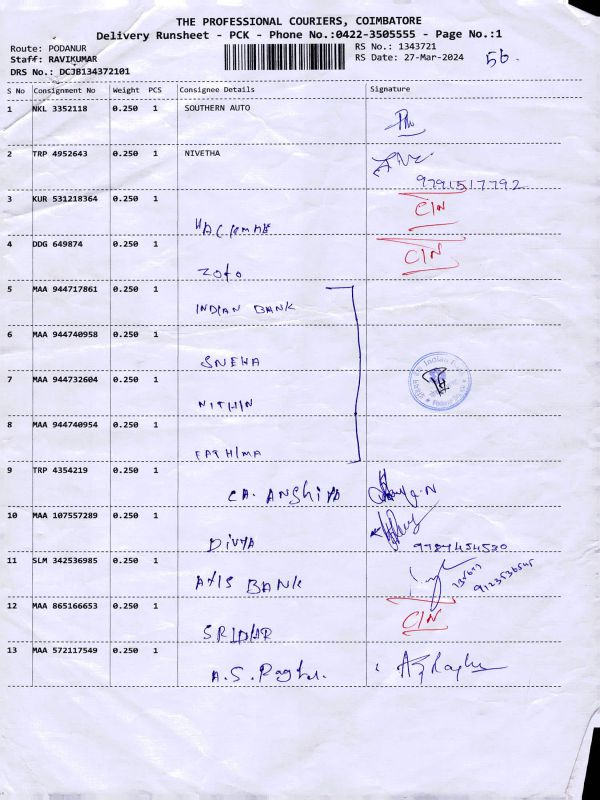 THE PROFESSIONAL COURIERS, COIMBATORE
Delivery Runsheet - PCK - Phone No.:0422-3505555 - Page No.:1
Route: PODANUR
Staff: RAVIKUMAR
DRS No.: DCJB134372101
RS No.: 1343721
RS Date: 27-Mar-2024
56.
S No Consignment No Weight PCS Consignee Details Signature
1 NKL 3352118 0.250 1 SOUTHERN AUTO
2 TRP 4952643 0.250 1 NIVETHA
9791517792
3 KUR 531218364 0.250 1 C/N
4 DDG 649874 0.250 1 C/N
Zoto
5 MAA 944717861 0.250 1
INDIAN BANK
6 MAA 944740958 0.250 1
SNEHA
7 MAA 944732604 0.250 1
NITHIN
Indian
8 MAA 944740954 0.250 1
FATHIMA
9 TRP 4354219 0.250 1
CA. ANSHIYA
10 MAA 107557289 0.250 1
DIVYA
9787454520
11 SLM 342536985 0.250 1
AXIS BANK
9123536545
12 MAA 865166653 0.250 1 C/N
SRIDHAR
13 MAA 572117549 0.250 1
A.S. Raghu.